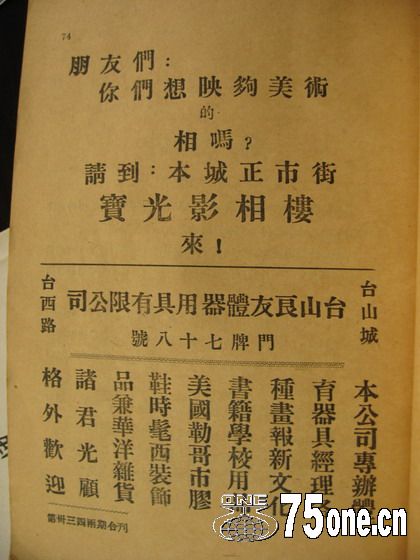 74
朋友們:
你們想映夠美術
的
相嗎?
請到:本城正市街
寶光影相樓
來!
台山城
台山良友體器用具有限公司
門牌七十八號
台西路
本公司專辦體
育器具經理各
種畫報新文化
書籍學校用品
美國勒哥市膠
鞋時髦西裝飾
品兼華洋雜貨
諸君光顧
格外歡迎
第卅三四兩期合刊
ONE
75one.cn